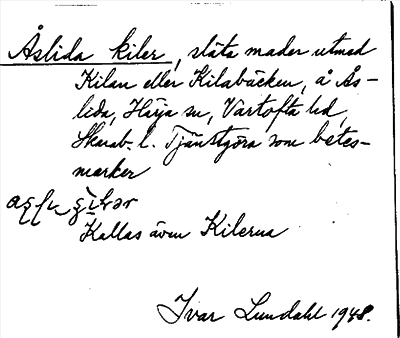 Åslida kiler, släta mader utmed
Kilan eller Kilabäcken, å Ås-
lida, Härja sn, Vartofta hd,
Skarab. l. Tjänstgöra som betes-
marker
Kallas även Kilerna
Ivar Lundahl 1948.